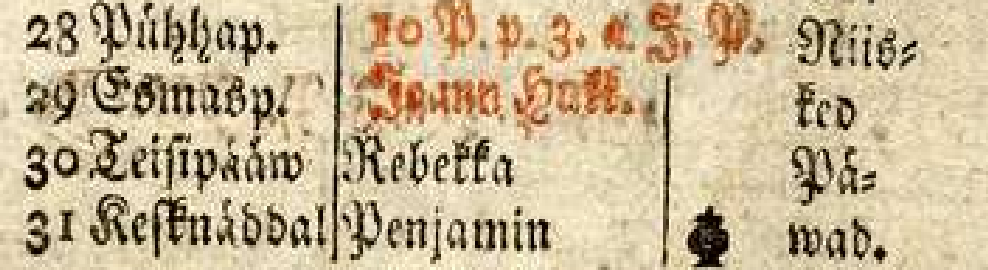 28 Pühhap. 10 P. p. 3. a. J. P. Niis⸗
29 Esmasp. Hukk. ked
30 Teisipääw Rebekka Pä⸗
31 Kesknäddal Penjamin wad.